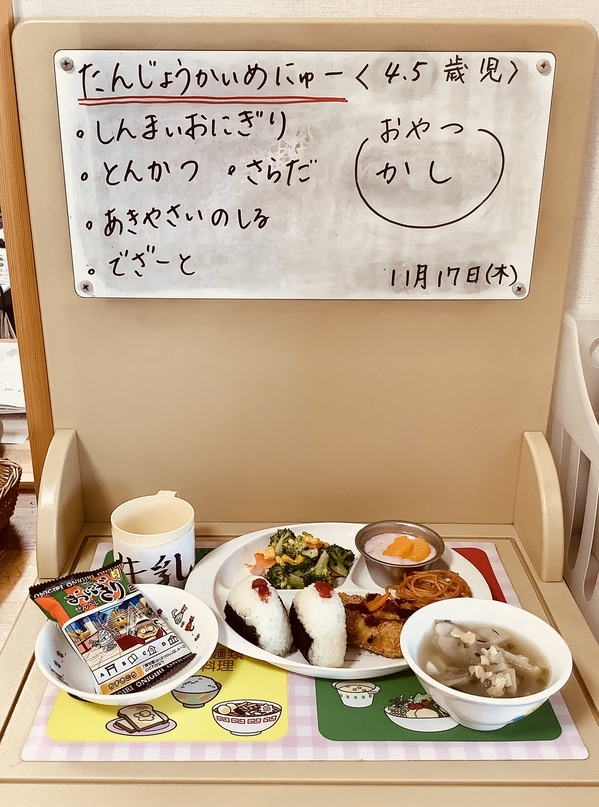 たんじょうかいめにゅー〈4.5歳児〉
。しんまいおにぎり
。とんかつ 。さらだ
。あきやさいのしる
。でざーと
おやつ
かし
11月17日(木)
牛乳
料理